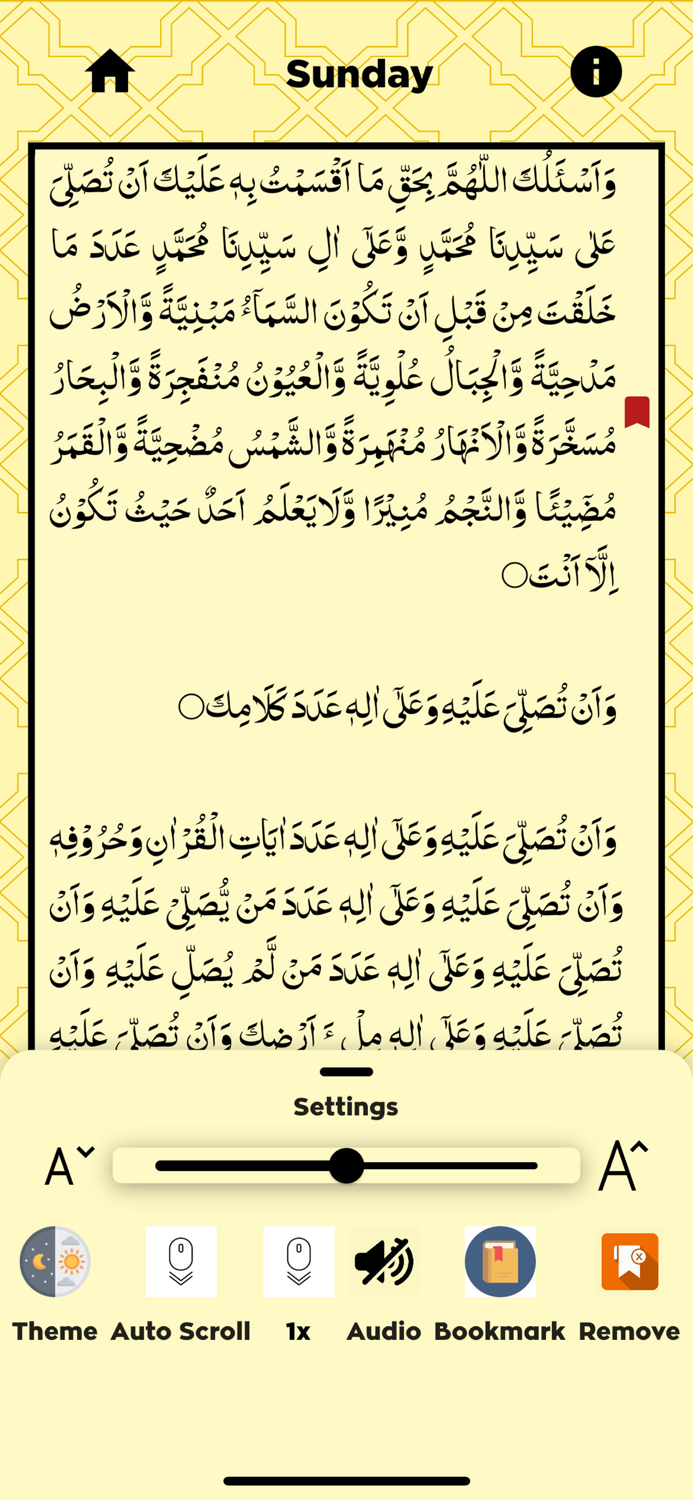 Sunday
وَاَسْئَلُكَ اللّٰهُمَّ بِحَقِّ مَا اَقْسَمْتُ بِهٖ عَلَيْكَ اَنْ تُصَلِّىَ
عَلٰى سَيِّدِنَا مُحَمَّدٍ وَّعَلٰٓى اٰلِ سَيِّدِنَا مُحَمَّدٍ عَدَدَ مَا
خَلَقْتَ مِنْ قَبْلِ اَنْ تَكُوْنَ السَّمَآءُ مَبْنِيَّةً وَّالْاَرْضُ
مَدْحِيَّةً وَّالْجِبَالُ عُلْوِيَّةً وَّالْعُيُوْنُ مُنْفَجِرَةً وَّالْبِحَارُ
مُسَخَّرَةً وَّالْاَنْهَارُ مُنْهَمِرَةً وَّالشَّمْسُ مُضْحِيَّةً وَّالْقَمَرُ
مُضِٓيْئًا وَّالنَّجْمُ مُنِيْرًا وَّلَايَعْلَمُ اَحَدٌ حَيْثُ تَكُوْنُ
اِلَّآ اَنْتَ○
وَاَنْ تُصَلِّىَ عَلَيْهِ وَعَلٰٓى اٰلِهٖ عَدَدَ كَلَامِكَ○
وَاَنْ تُصَلِّىَ عَلَيْهِ وَعَلٰٓى اٰلِهٖ عَدَدَ اٰيَاتِ الْقُرْاٰنِ وَحُرُوْفِهٖ
وَاَنْ تُصَلِّىَ عَلَيْهِ وَعَلٰٓى اٰلِهٖ عَدَدَ مَنْ يُّصَلِّىْ عَلَيْهِ وَاَنْ
تُصَلِّىَ عَلَيْهِ وَعَلٰٓى اٰلِهٖ عَدَدَ مَنْ لَّمْ يُصَلِّ عَلَيْهِ وَاَنْ
تُصَلِّىَ عَلَيْهِ وَعَلٰٓى اٰلِهٖ مِلْءَ اَرْضِكَ وَاَنْ تُصَلِّىَ عَلَيْهِ
Settings
A A
Theme Auto Scroll 1x Audio Bookmark Remove